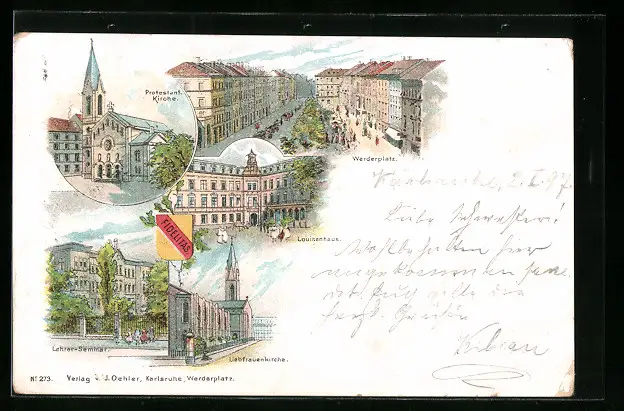 Protestant.
Kirche.
Werderplatz.
Louisenhaus.
FIDELITAS
Lehrer-Seminar.
Liebfrauenkirche.
No 273. Verlag v. J. Oehler, Karlsruhe, Werderplatz.
Karlsruhe, 2.I.97
Liebe Schwester!
Wohlbehalten hier
angekommen
Euch alle die
herzl. Grüße
Kilian